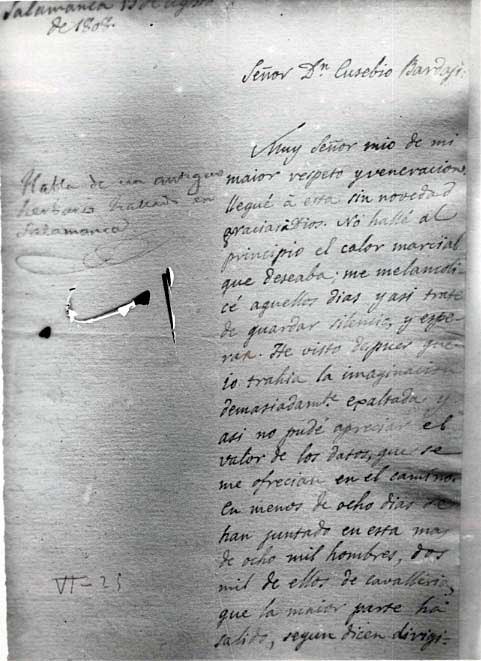 Salamanca 13 de Agto
de 1808.
Señor Dn Eusebio Bardaji.
Muy Señor mio de mi
maior respeto y veneracion.
llegué à esta sin novedad
gracias à Dios. No hallé al
principio el calor marcial
que deseaba: me melancoli-
cé aquellos dias y asi traté
de guardar silencio, y espe-
rar. He visto despues que
io trahia la imaginacion
demasiadamte exaltada y
asi no pude apreciar el
valor de los datos, que se
me ofrecian en el camino.
En menos de ocho dias se
han juntado en esta mas
de ocho mil hombres, dos
mil de ellos de cavalleria,
que la maior parte ha
salido, segun dicen dirigi-
Habla de un antiguo
herbario hallado en
Salamanca
VI-23